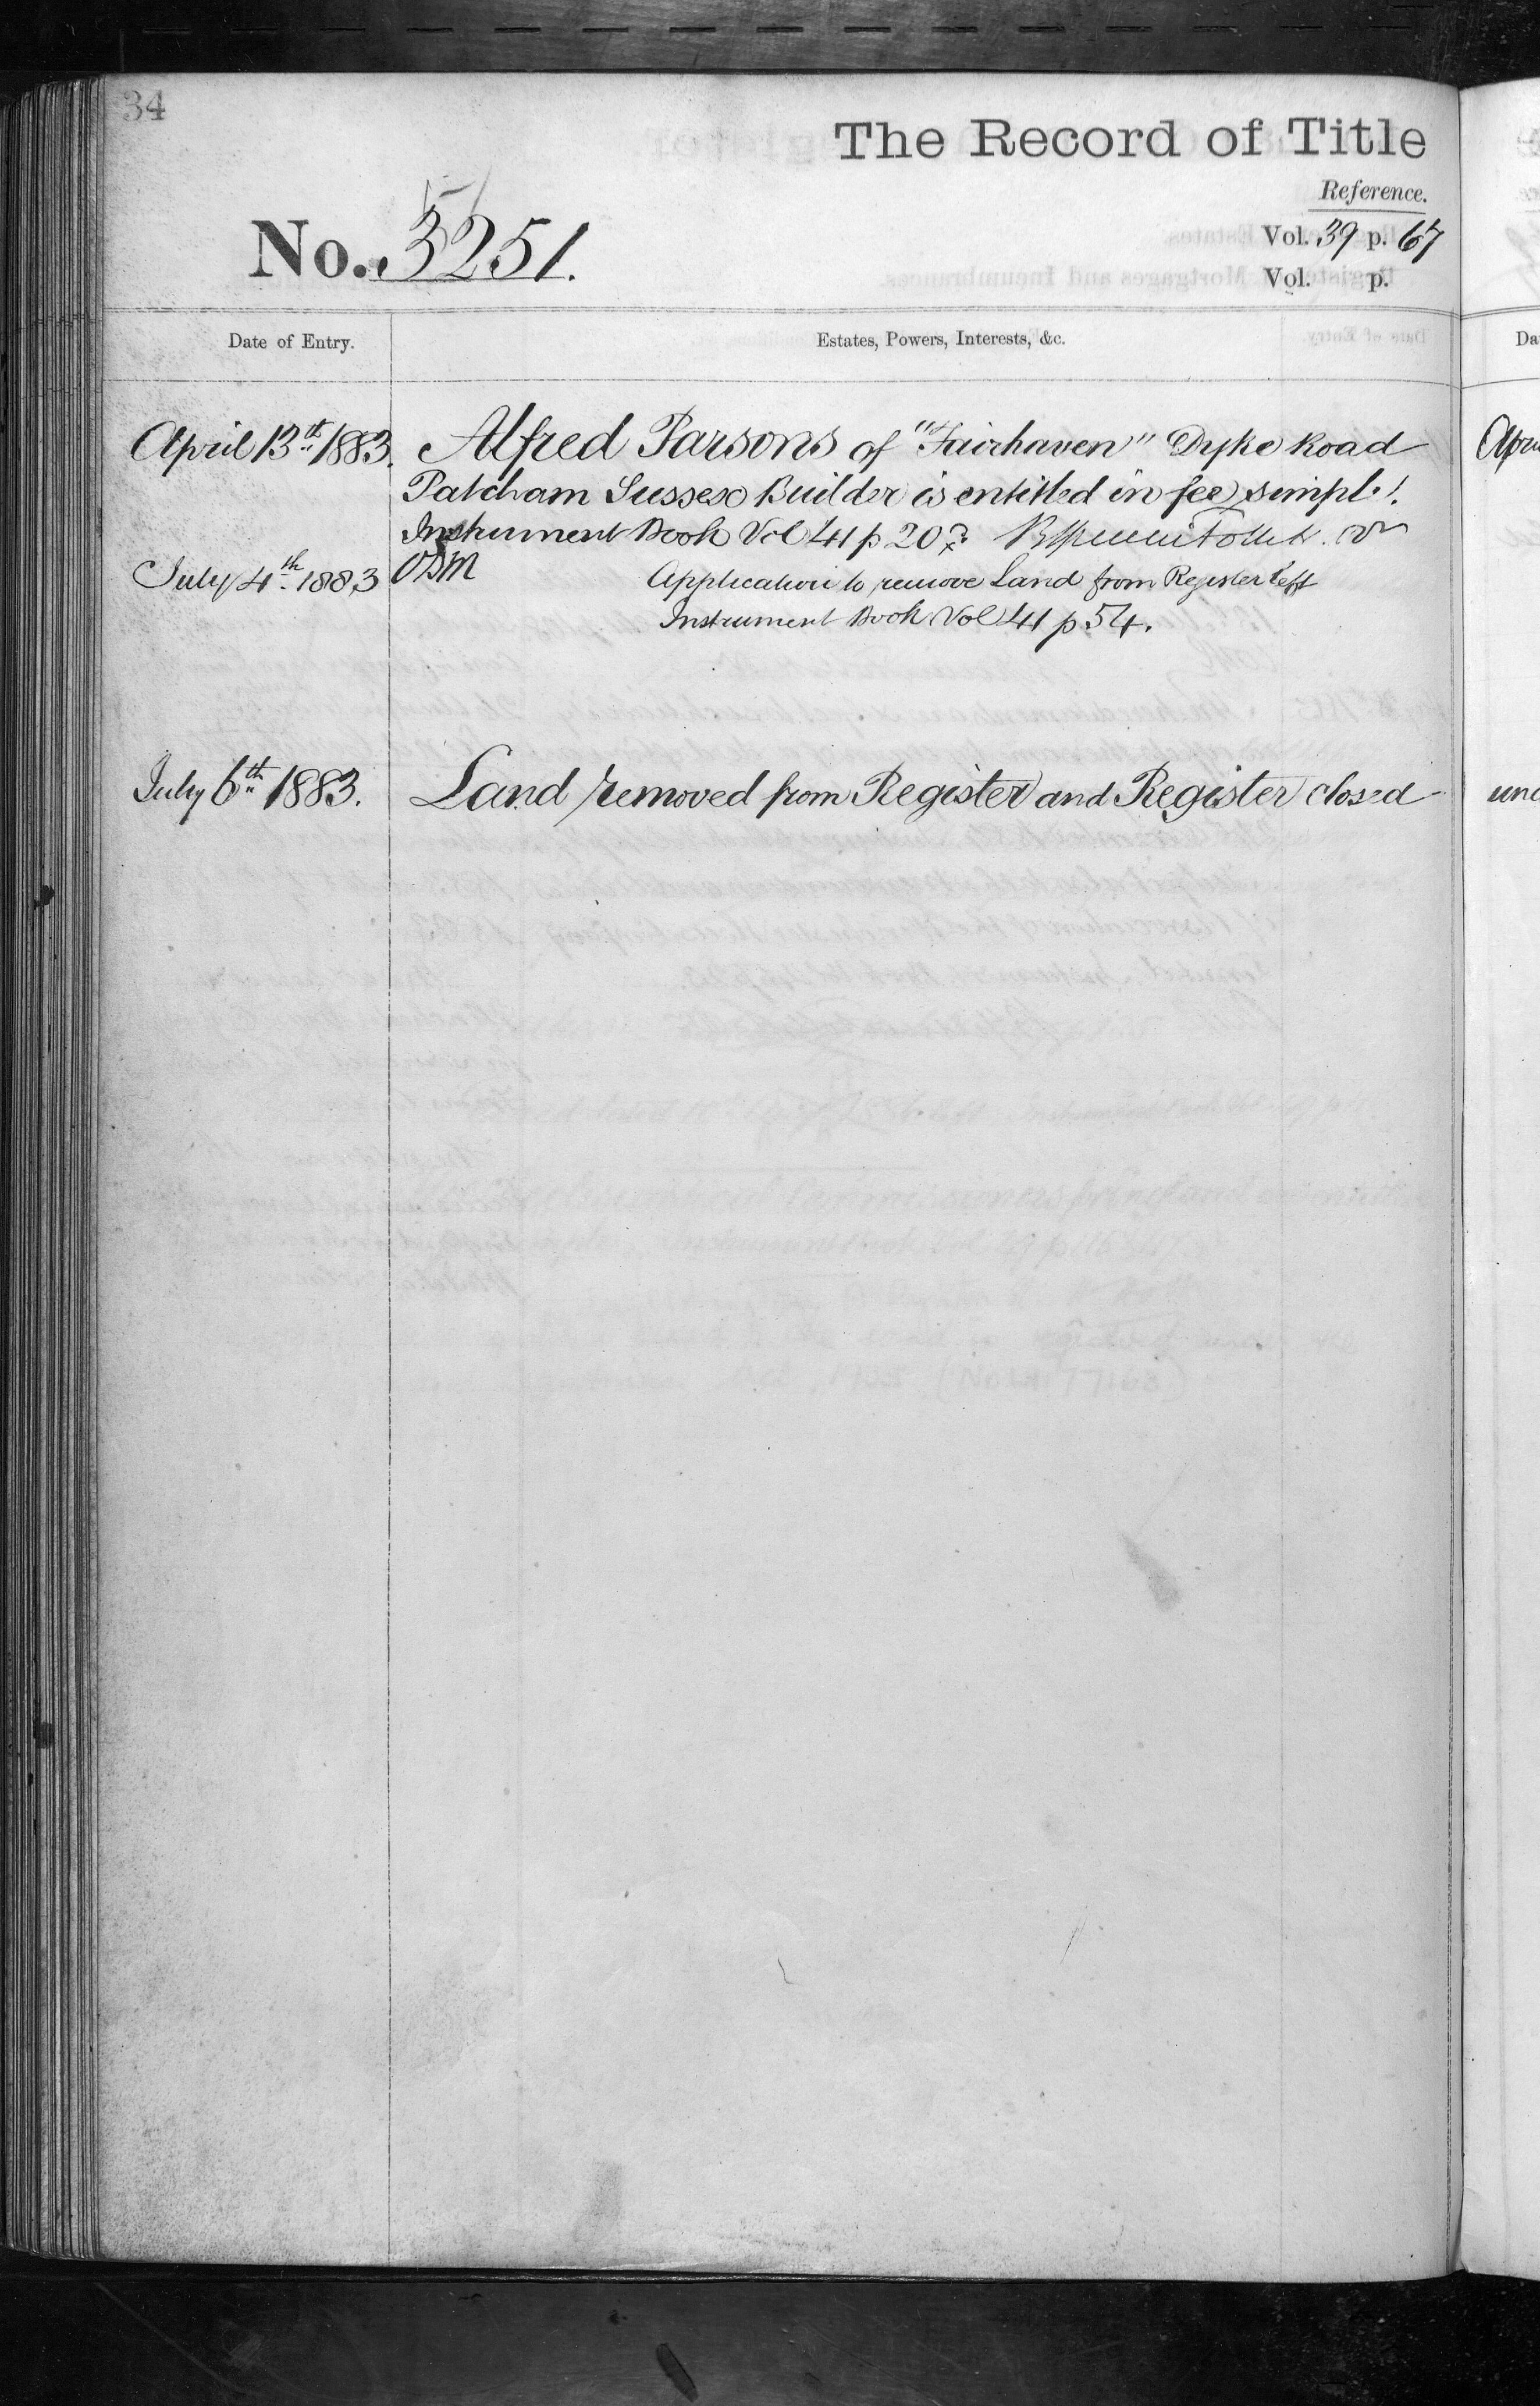 34
The Record of Title
Reference.
No. 3251.
Vol. 39 p. 67
Vol. p.
Date of Entry.
Estates, Powers, Interests, &c.
April 13th 1883. Alfred Parsons of "Fairhaven" Dyke Road
Patcham Sussex Builder is entitled in fee simple.
Instrument Book Vol 41 p 20
July 4th 1883 Application to remove Land from Register left
Instrument Book Vol 41 p 54.
July 6th 1883. Land removed from Register and Register closed